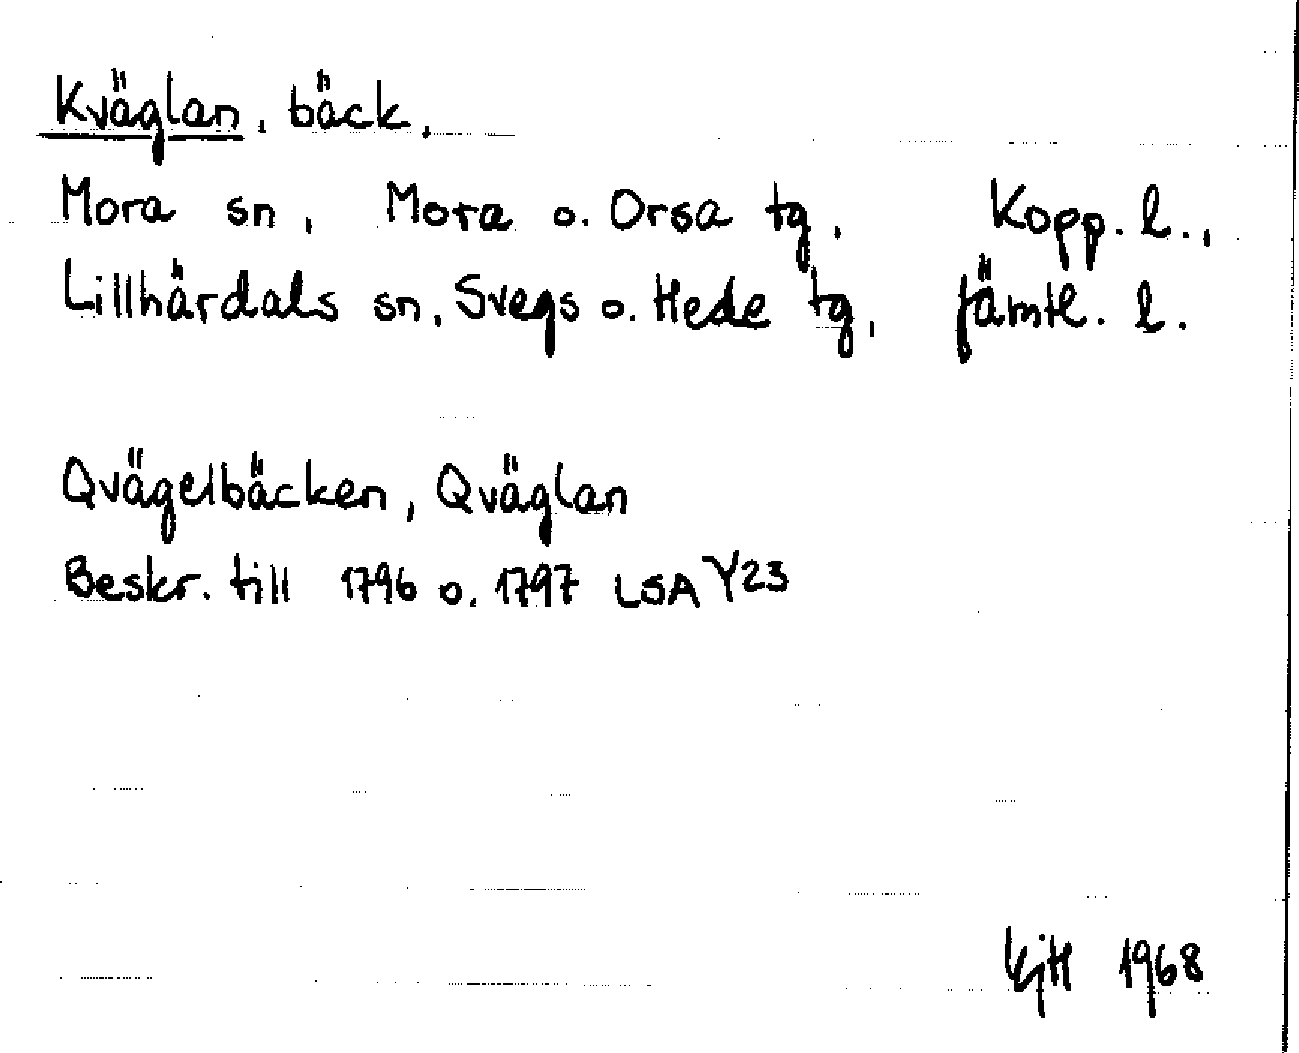 Kväglan, bäck,
Mora sn, Mora o. Orsa tg, Kopp. l.,
Lillhärdals sn, Svegs o. Hede tg, Jämtl. l.
Qvägelbäcken, Qväglan
Beskr. till 1796 o. 1797 LSA Y23
KjH 1968